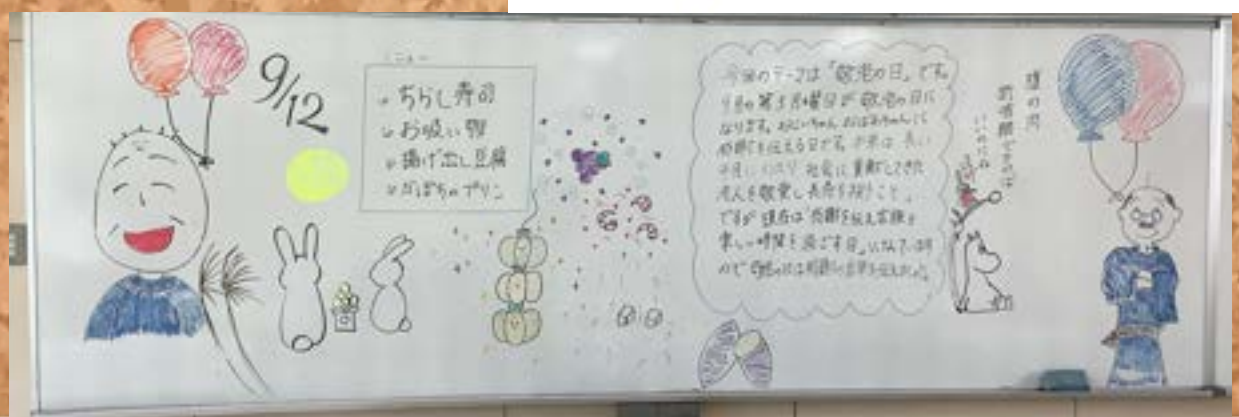 9/12
メニュー
ちらし寿司
お吸い物
揚げ出し豆腐
かぼちゃプリン
今回のテーマは「敬老の日」です。
9月の第3月曜日が敬老の日に
なります。おじいちゃん おばあちゃんに
感謝を伝える日です。本来は 長い
年月にわたり 社会に貢献してきた
老人を敬愛し 長寿を祝うこと。
ですが 現在は「感謝を伝え家族と
楽しい時間を過ごす日」になっています
ので